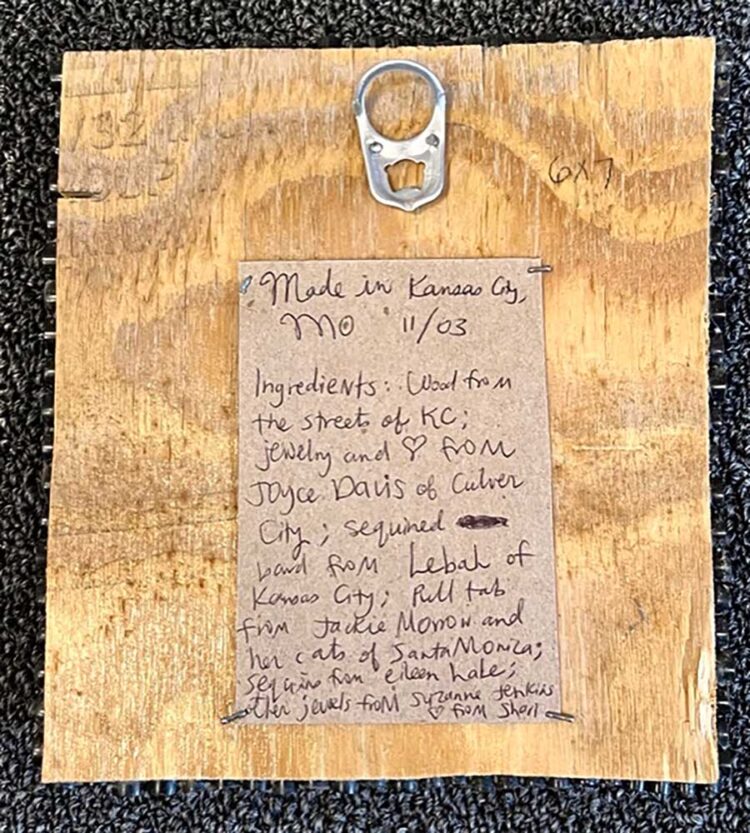 132
6x7
Made in Kansas City,
MO 11/03
Ingredients: Wood from
the streets of KC;
jewelry and ♡ from
Joyce Davis of Culver
City; sequined
band from Lebah of
Kansas City; Pull tab
from Jackie Morrow and
her cats of Santa Monica;
sequins from eileen
other jewels from Suzanne Jenkins
♡ from Shari